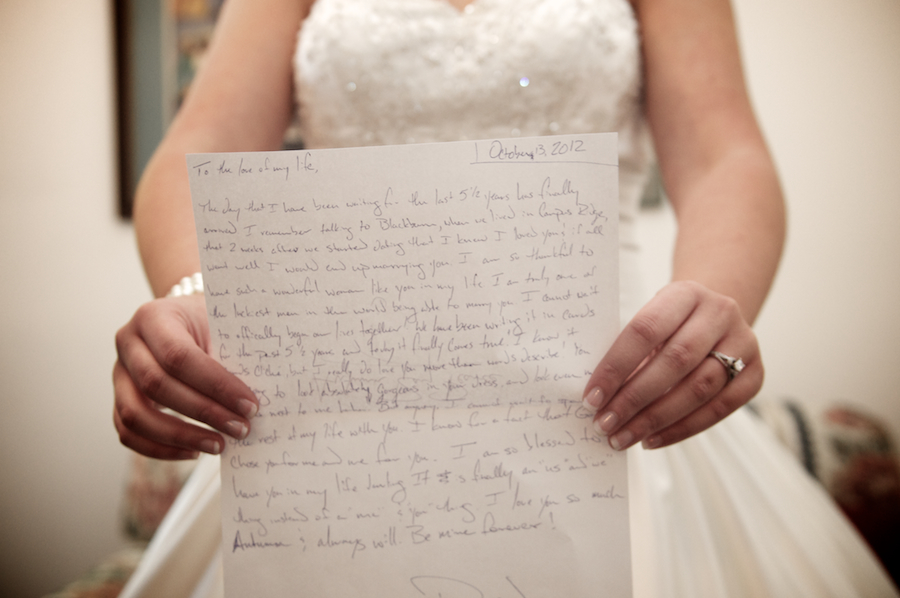 October 13, 2012
To the love of my life,
The day that I have been waiting for the last 5 1/2 years has finally
arrived I remember talking to Blackburn, when we lived in Campus Ridge,
that 2 weeks after we started dating that I know I loved you & if all
went well I would end up marrying you. I am so thankful to
have such a wonderful woman like you in my life I am truly one of
the luckiest men in the world being able to marry you. I cannot wait
to officially begin our lives together. We have been writing it in cards
for the past 5 1/2 years and today it finally comes true. I know it
cliché, but I really do love you more than words describe! You
to look absolutely gorgeous in your dress, and but even
next to me
the rest of my life with you. I know for a fact that God
chose you for me and me for you. I am so blessed to
have you in my life darling. It is finally, an "us" and "we"
thing instead of a "me" & "you" thing. I love you so much
Autumn & always will. Be mine forever!